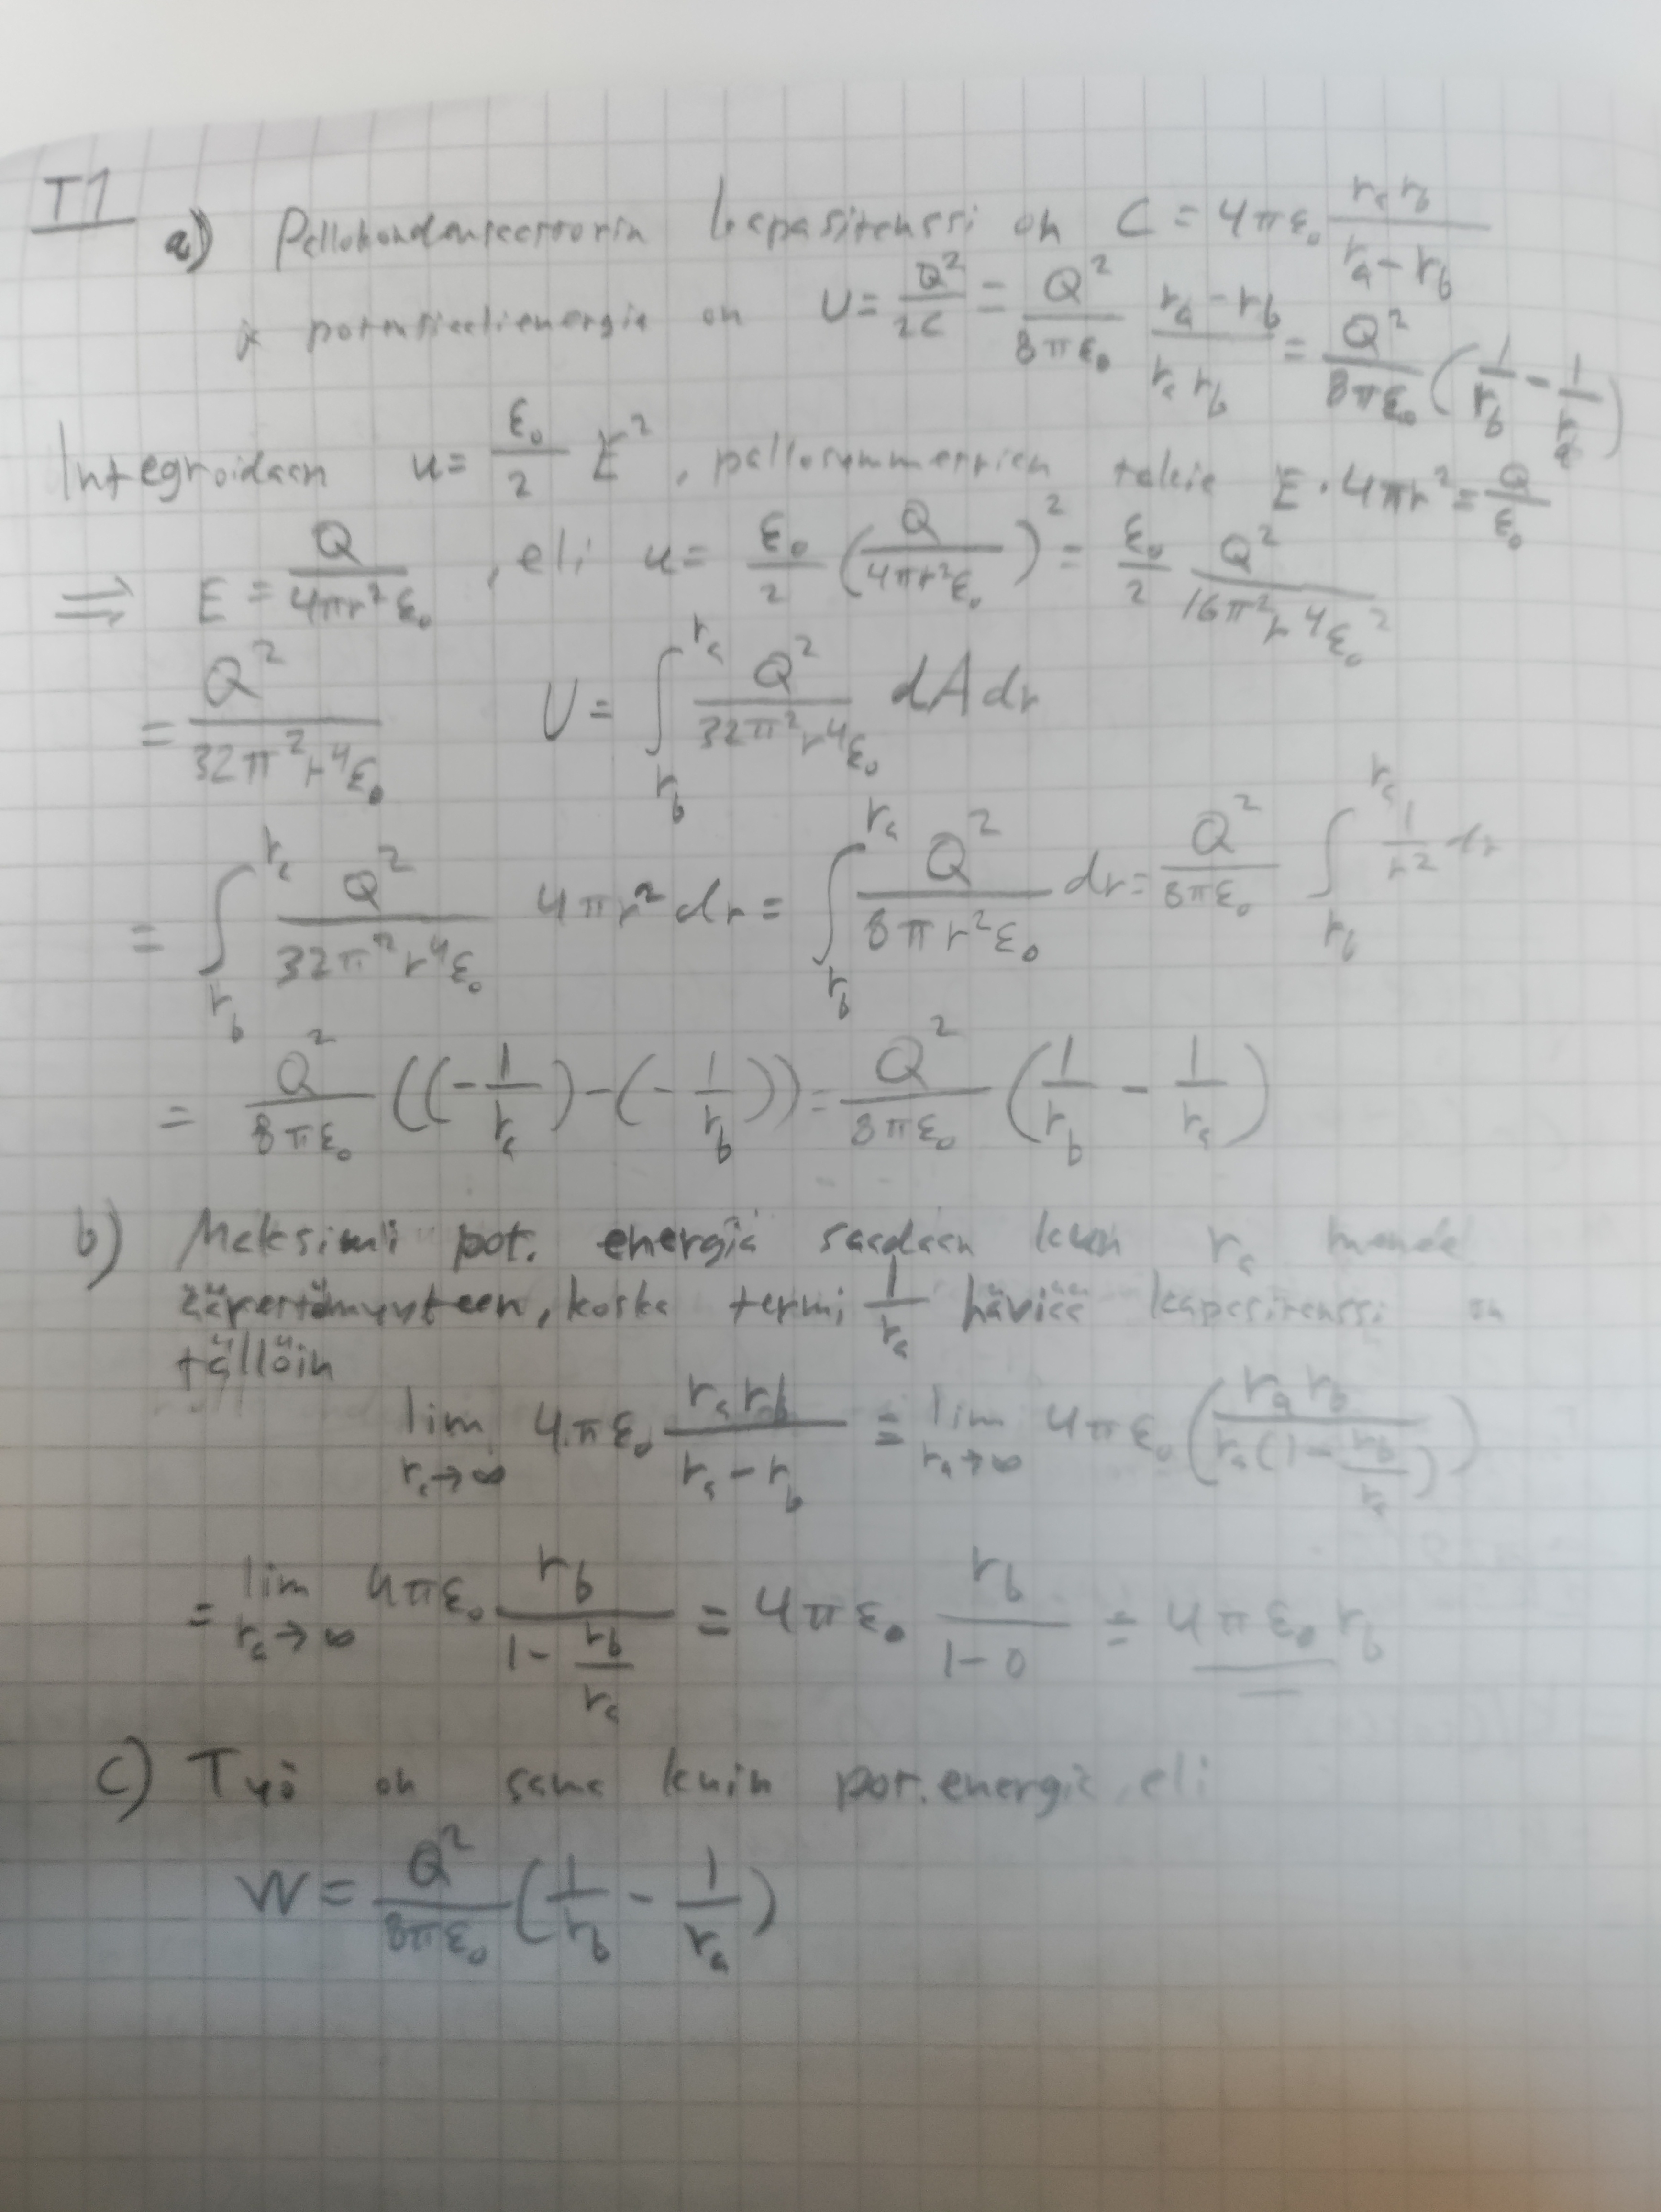 T1
a) Pallokondensaattorin kapasitanssi on C = 4πε₀ rₐr_b / (rₐ - r_b)
ja potentiaalienergia on U = Q²/2C = Q²/8πε₀ (rₐ - r_b)/(rₐr_b) = Q²/8πε₀ (1/r_b - 1/rₐ)
Integroidaan u = ε₀/2 E², pallosymmetrian takia E · 4πr² = Q/ε₀
⇒ E = Q/4πr²ε₀, eli u = ε₀/2 (Q/4πr²ε₀)² = ε₀/2 Q²/16π²r⁴ε₀²
= Q²/32π²r⁴ε₀ U = ∫_{r_b}^{rₐ} Q²/32π²r⁴ε₀ dA dr
= ∫_{r_b}^{rₐ} Q²/32π²r⁴ε₀ 4πr² dr = ∫_{r_b}^{rₐ} Q²/8πr²ε₀ dr = Q²/8πε₀ ∫_{r_b}^{rₐ} 1/r² dr
= Q²/8πε₀ ((-1/rₐ) - (-1/r_b)) = Q²/8πε₀ (1/r_b - 1/rₐ)
b) Maksimi pot. energia saadaan kun rₐ menee
äärettömyyteen, koska termi 1/rₐ häviää kapasitanssi on
tällöin
lim_{rₐ→∞} 4πε₀ rₐr_b/(rₐ - r_b) = lim_{rₐ→∞} 4πε₀ (rₐr_b/(rₐ(1 - r_b/rₐ)))
= lim_{rₐ→∞} 4πε₀ r_b/(1 - r_b/rₐ) = 4πε₀ r_b/(1-0) = 4πε₀r_b
c) Työ on sama kuin pot. energia, eli
W = Q²/8πε₀ (1/r_b - 1/rₐ)